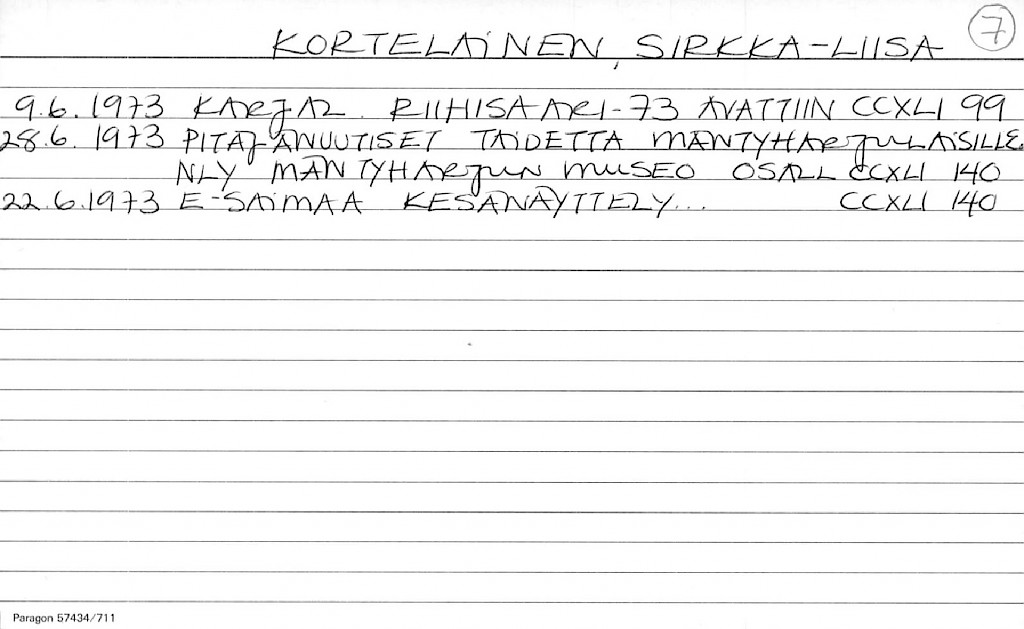 7
KORTELAINEN, SIRKKA-LIISA
9.6. 1973 KARJAL. RIIHISAARI-73 AVATTIIN CCXLI 99
28.6. 1973 PITÄJÄNUUTISET TAIDETTA MÄNTYHARJULAISILLE
NLY MÄNTYHARJUN MUSEO OSALL CCXLI 140
22.6.1973 E-SAIMAA KESÄNÄYTTELY... CCXLI 140
Paragon 57434/711